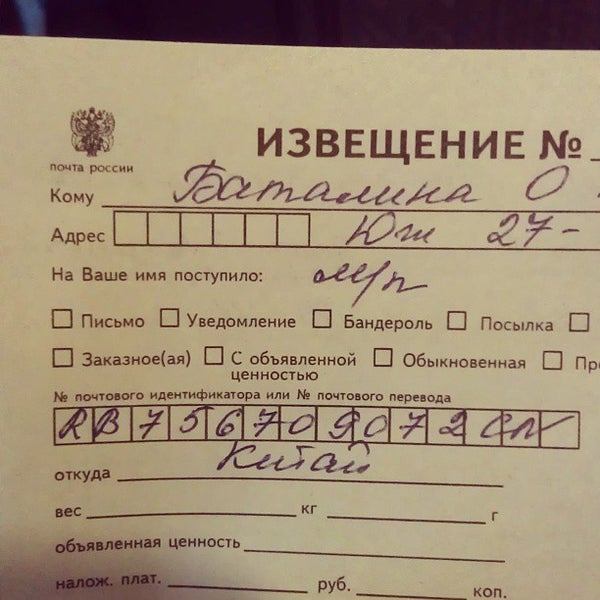 ПОЧТА РОССИИ
ИЗВЕЩЕНИЕ №
Кому Баталина О
Адрес Юж 27-
На Ваше имя поступило: м/п
Письмо Уведомление Бандероль Посылка
Заказное(ая) С объявленной ценностью Обыкновенная Пр
№ почтового идентификатора или № почтового перевода
RB756709072CN
откуда Китай
вес кг г
объявленная ценность
налож. плат. руб. коп.